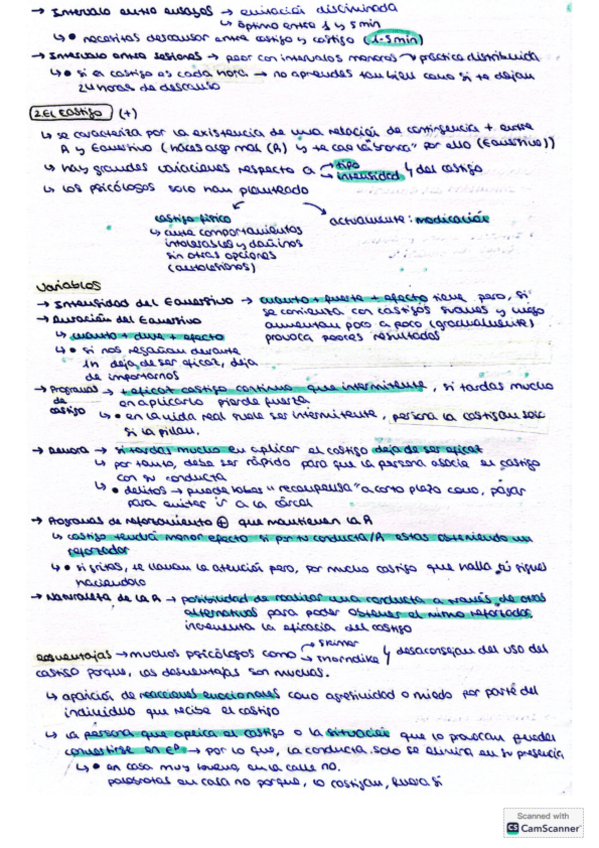 → Intervalo entre ensayos → evitación discriminada
↳ óptimo entre 1 y 5 min
↳ • necesitas descansar entre castigo y castigo (1-5min)
→ Intervalo entre sesiones → peor con intervalos menores → práctica distribuida
↳ • si el castigo es cada hora → no aprendes tan bien como si te dejan
24 horas de descanso
2. El castigo (+)
↳ se caracteriza por la existencia de una relación de contingencia + entre
A y Eaversivo (haces algo mal (A) y te cae la "bronca" por ello (Eaversivo))
↳ hay grandes variaciones respecto a tipo intensidad del castigo
↳ los psicólogos solo han planteado
castigo físico
actualmente: medicación
↳ ante comportamientos
intolerables y dañinos
sin otras opciones
(autolesiones)
Variables
→ Intensidad del Eaversivo → cuanto + fuerte + efecto tiene pero, si
se comienza con castigos suaves y luego
aumentan poco a poco (gradualmente)
provoca peores resultados
→ Duración del Eaversivo
↳ cuanto + dure + efecto
↳ • si nos regañan durante
1h deja de ser eficaz, deja
de importarnos
→ Programas de castigo → + eficaz castigo continuo que intermitente, si tardas mucho
en aplicarlo pierde fuerza
↳ • en la vida real suele ser intermitente, persona la castigan solo
si la pillan.
→ Demora → si tardas mucho en aplicar el castigo deja de ser eficaz
↳ por tanto, debe ser rápido para que la persona asocie el castigo
con su conducta
↳ • delitos → puede haber "recompensa" a corto plazo como, pagar
para evitar ir a la cárcel
→ Programas de reforzamiento ⊕ que mantienen la A
↳ castigo tendrá menor efecto si por tu conducta/A estás obteniendo un
reforzador
↳ • si gritas, te llaman la atención pero, por mucho castigo que halla, tú sigues
haciéndolo
→ Naturaleza de la A → posibilidad de realizar una conducta a través de otras
alternativas para poder obtener el mismo reforzador
incrementa la eficacia del castigo
Desventajas → muchos psicólogos como → Skinner → Thorndike desaconsejan del uso del
castigo porque, las desventajas son muchas.
↳ aparición de reacciones emocionales como agresividad o miedo por parte del
individuo que recibe el castigo
↳ la persona que aplica el castigo o la situación que lo provocan pueden
convertirse en Eᴰ → por lo que, la conducta solo se elimina en su presencia
↳ • en casa muy bueno, en la calle no.
palabrotas en casa no porque, lo castigan, fuera sí
Scanned with
CS CamScanner